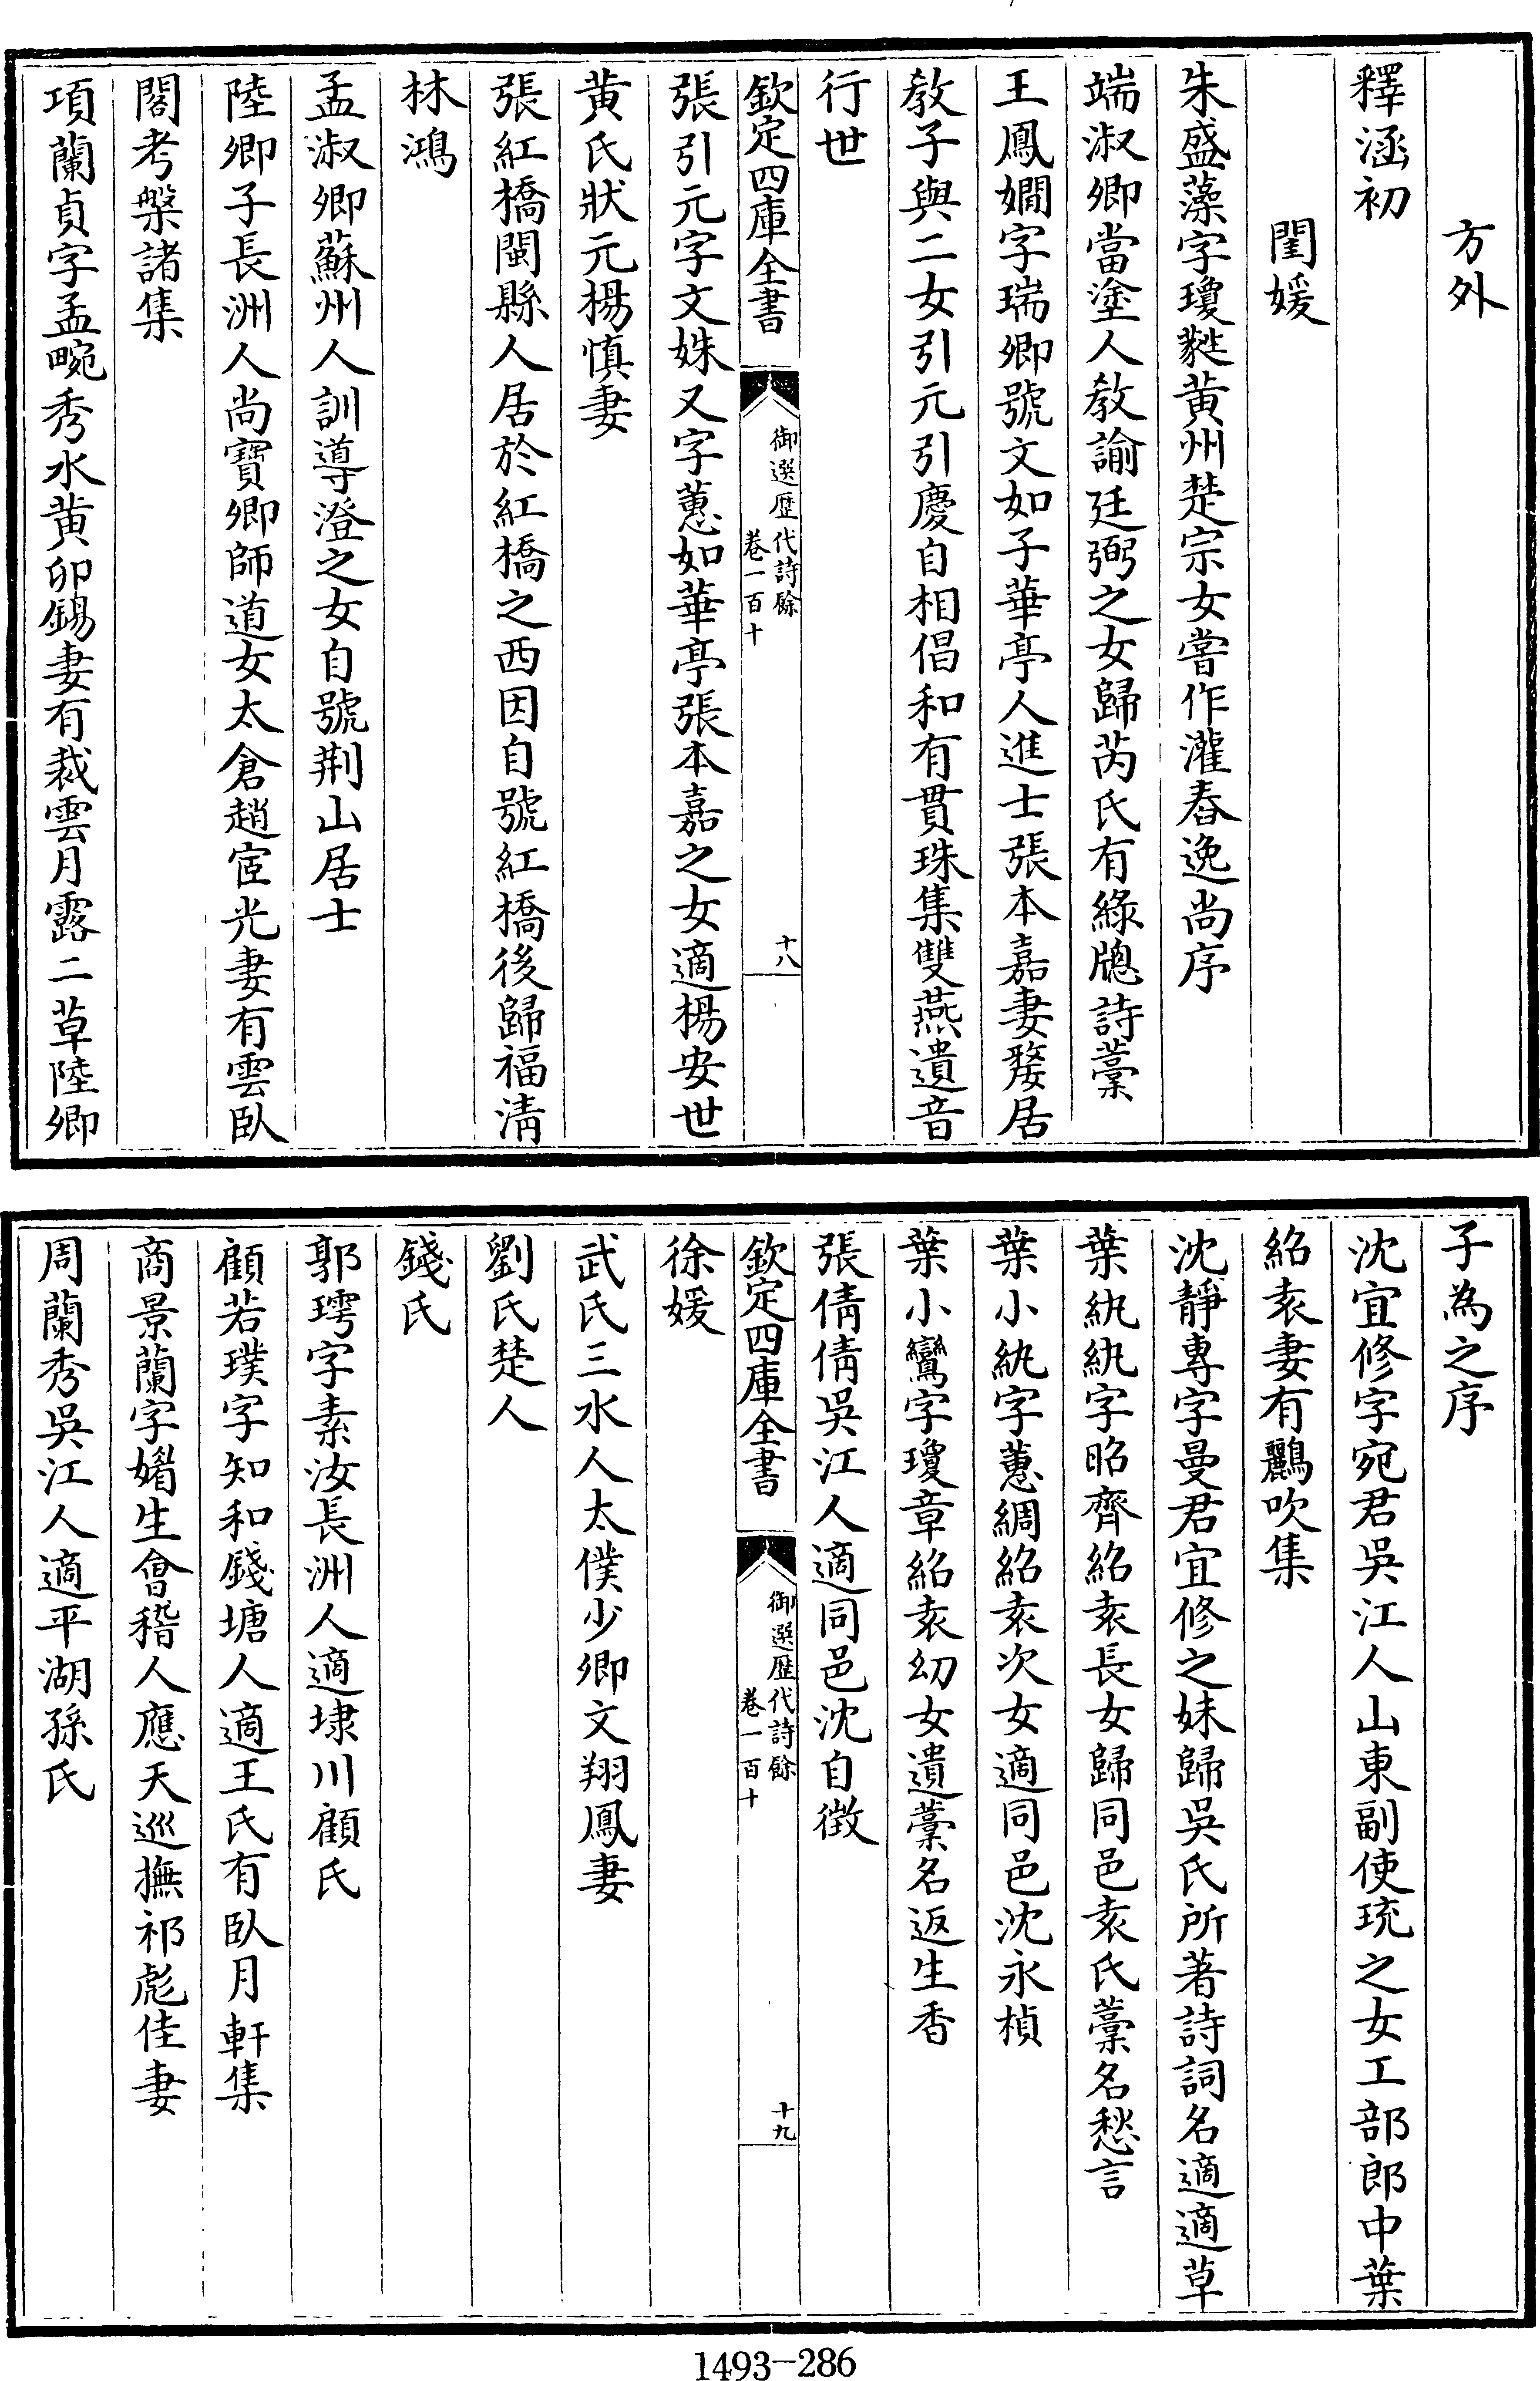 方外
釋涵初
閨媛
朱盛藻字瓊蕤黄州楚宗女嘗作灌春逸尚序
端淑卿當塗人教諭廷弼之女歸芮氏有綠牕詩藁
王鳳嫺字瑞卿號文如子華亭人進士張本嘉妻嫠居
教子與二女引元引慶自相倡和有貫珠集雙燕遺音
行世
欽定四庫全書
御選歷代詩餘
卷一百十
十八
張引元字文姝又字蕙如華亭張本嘉之女適楊安世
黄氏狀元楊慎妻
張紅橋閩縣人居於紅橋之西因自號紅橋後歸福清
林鴻
孟淑卿蘇州人訓導澄之女自號荆山居士
陸卿子長洲人尚寶卿師道女太倉趙宧光妻有雲臥
閣考槃諸集
項蘭貞字孟畹秀水黄卯錫妻有裁雲月露二草陸卿
子為之序
沈宜修字宛君吳江人山東副使珫之女工部郎中葉
紹袁妻有鸝吹集
沈靜專字曼君宜修之妹歸吳氏所著詩詞名適適草
葉紈紈字昭齊紹袁長女歸同邑袁氏藁名愁言
葉小紈字蕙綢紹袁次女適同邑沈永楨
葉小鸞字瓊章紹袁幼女遺藁名返生香
張倩倩吳江人適同邑沈自徵
欽定四庫全書
御選歷代詩餘
卷一百十
十九
徐媛
武氏三水人太僕少卿文翔鳳妻
劉氏楚人
錢氏
郭㻴字素汝長洲人適埭川顧氏
顧若璞字知和錢塘人適王氏有臥月軒集
商景蘭字媚生會稽人應天巡撫祁彪佳妻
周蘭秀吳江人適平湖孫氏
1493-286